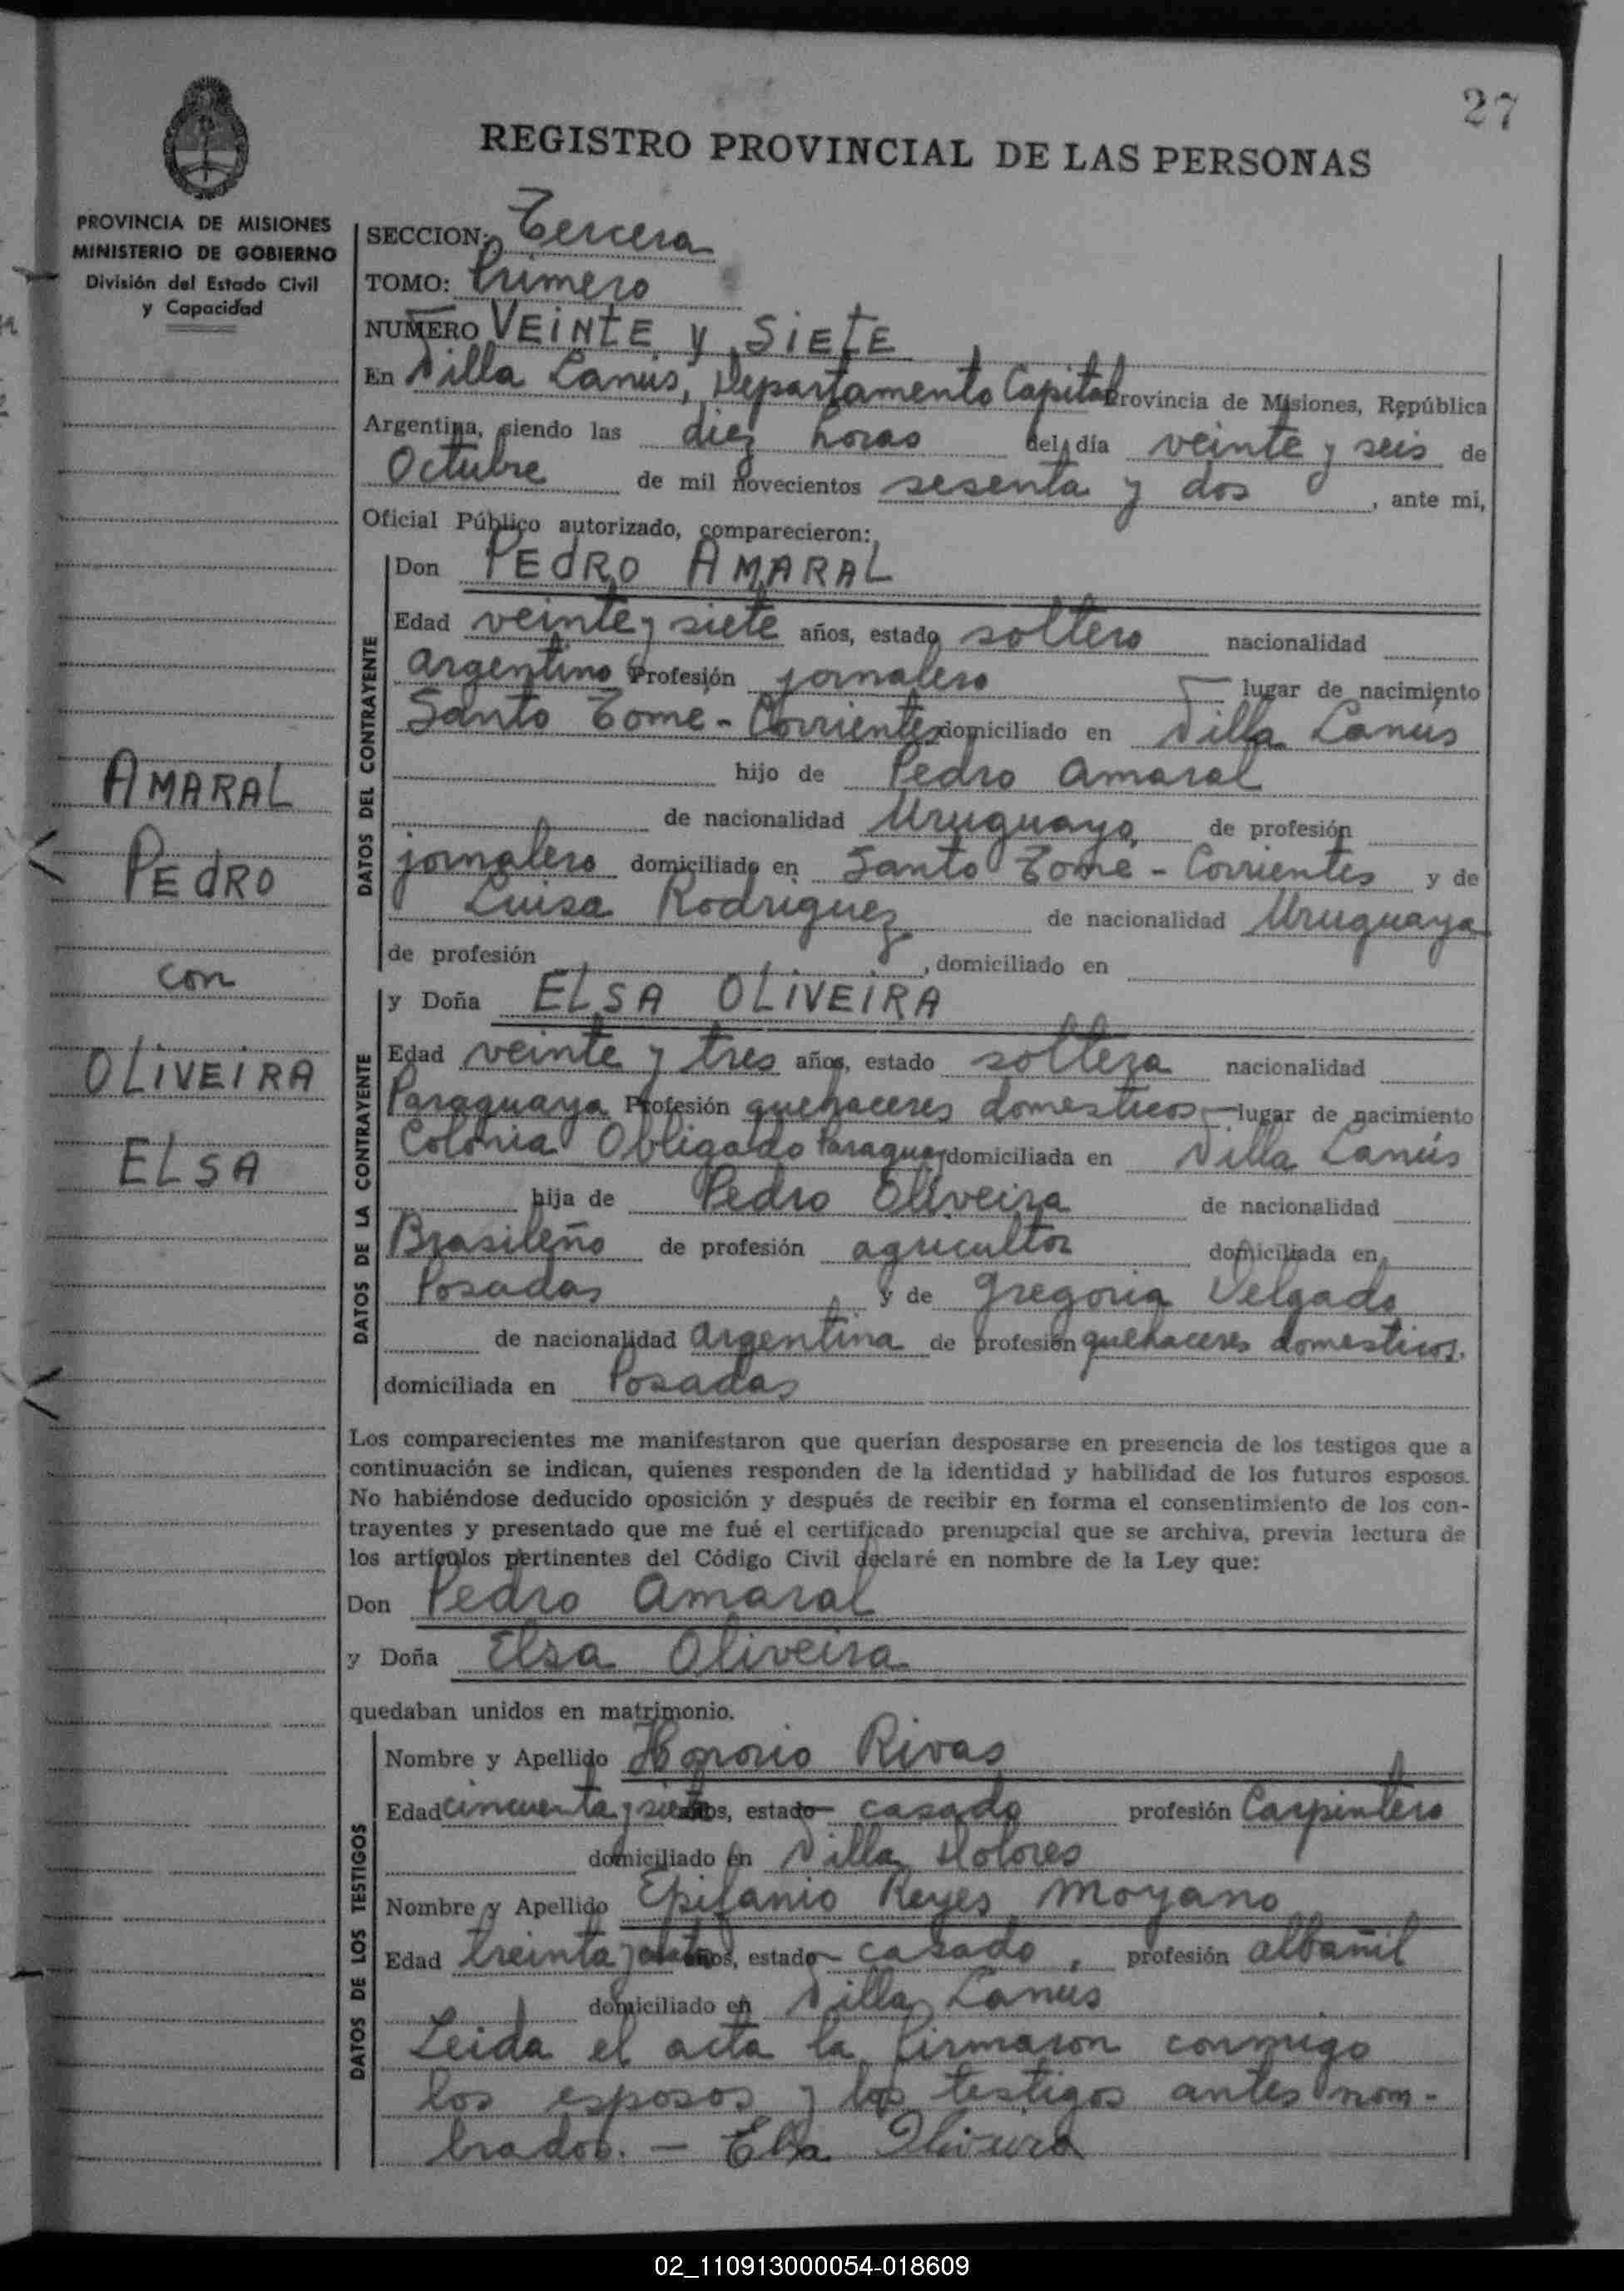 27
REGISTRO PROVINCIAL DE LAS PERSONAS
PROVINCIA DE MISIONES
MINISTERIO DE GOBIERNO
División del Estado Civil
y Capacidad
AMARAL
PEdRO
con
OLIVEIRA
ELSA
SECCION: Tercera
TOMO: Primero
NUMERO VEINTE y SIETE
En Villa Lanús, Departamento Capital Provincia de Misiones, República
Argentina, siendo las diez horas del día veinte y seis de
Octubre de mil novecientos sesenta y dos, ante mi,
Oficial Público autorizado, comparecieron:
DATOS DEL CONTRAYENTE
Don PEdRO AMARAL
Edad veinte y siete años, estado soltero nacionalidad
argentino Profesión jornalero lugar de nacimiento
Santo Tome - Corrientes domiciliado en Villa Lanús
hijo de Pedro Amaral
de nacionalidad Uruguayo de profesión
jornalero domiciliado en Santo Tome - Corrientes y de
Luisa Rodriguez de nacionalidad Uruguaya
de profesión , domiciliado en
DATOS DE LA CONTRAYENTE
y Doña ELSA OLIVEIRA
Edad veinte y tres años, estado soltera nacionalidad
Paraguaya Profesión quehaceres domesticos lugar de nacimiento
Colonia Obligado Paraguay domiciliada en Villa Lanús
hija de Pedro Oliveira de nacionalidad
Brasileño de profesión agricultor domiciliada en
Posadas y de Gregoria Delgado
de nacionalidad argentina de profesión quehaceres domesticos.
domiciliada en Posadas
Los comparecientes me manifestaron que querían desposarse en presencia de los testigos que a
continuación se indican, quienes responden de la identidad y habilidad de los futuros esposos.
No habiéndose deducido oposición y después de recibir en forma el consentimiento de los con-
trayentes y presentado que me fué el certificado prenupcial que se archiva, previa lectura de
los artículos pertinentes del Código Civil declaré en nombre de la Ley que:
Don Pedro Amaral
y Doña Elsa Oliveira
quedaban unidos en matrimonio.
DATOS DE LOS TESTIGOS
Nombre y Apellido Honorio Rivas
Edad cincuenta y siete años, estado casado profesión Carpintero
domiciliado en Villa Dolores
Nombre y Apellido Epifanio Reyes Moyano
Edad treinta y años, estado casado, profesión albañil
domiciliado en Villa Lanus
Leida el acta la firmaron conmigo
los esposos y los testigos antes nom-
brados. - Elsa Oliveira
02_110913000054-018609